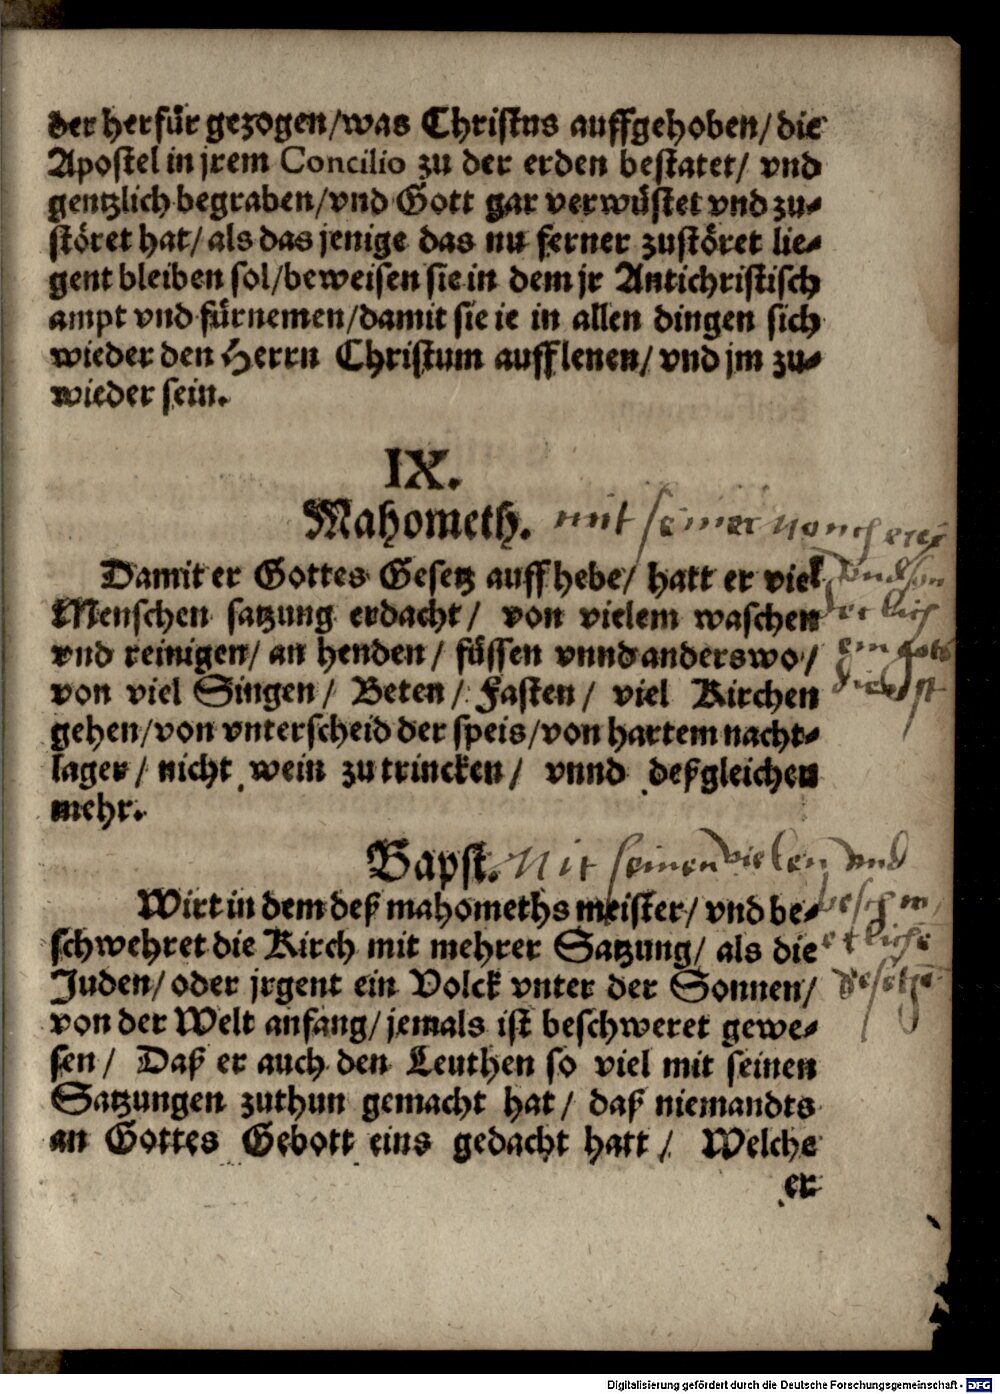 der herfür gezogen/was Christus auffgehoben/die
Apostel in jrem Concilio zu der erden bestatet/ vnd
gentzlich begraben/vnd Gott gar verwüstet vnd zu-
störet hat/ als das jenige das nu ferner zustöret lie-
gent bleiben sol/beweisen sie in dem jr Antichristisch
ampt vnd fürnemen/damit sie ie in allen dingen sich
wieder den Herrn Christum aufflenen/ vnd jm zu-
wieder sein.
IX.
Mahometh. mit seiner
Damit er Gottes Gesetz auffhebe/ hatt er viel
Menschen satzung erdacht/ von vielem waschen
vnd reinigen/ an henden/ füssen vnnd anderswo/
von viel Singen/ Beten/ Fasten/ viel Kirchen
gehen/von vnterscheid der speis/von hartem nacht-
lager/ nicht wein zu trincken/ vnnd deßgleichen
mehr.
Bapst. Mit seinen vielen vnd
Wirt in dem deß mahomeths meister/ vnd be-
schwehret die Kirch mit mehrer Satzung/ als die
Juden/ oder jrgent ein Volck vnter der Sonnen/
von der Welt anfang/ jemals ist beschweret gewe-
sen/ Daß er auch den Leuthen so viel mit seinen
Satzungen zuthun gemacht hat/ daß niemandts
an Gottes Gebott eins gedacht hatt/ Welche
er
Digitalisierung gefördert durch die Deutsche Forschungsgemeinschaft - DFG